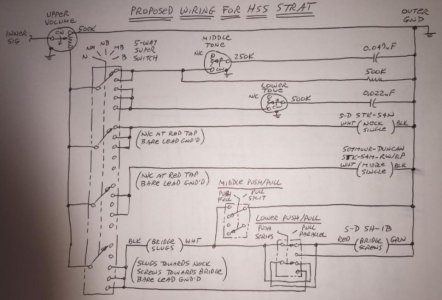 PROPOSED WIRING FOR HSS STRAT
UPPER
VOLUME
OUTER
GND
INNER
SIG
500K
N
NM
NB
MB
B
5-WAY
SUPER
SWITCH
MIDDLE
TONE
N/C
250K
0.047uF
500K
LOWER
TONE
N/C
500K
0.022uF
(N/C AT RED TAP
BARE LEAD GND'D)
S-D STK-S4N
WHT (NECK SINGLE) BLK
(N/C AT RED TAP
BARE LEAD GND'D)
WHT (MIDDLE SINGLE) BLK
MIDDLE PUSH/PULL
PUSH
FULL
PULL
SPLIT
LOWER PUSH/PULL
PUSH
SERIES
PULL
PARALLEL
BLK (BRIDGE SLUGS) WHT
S-D SH-1B
RED (BRIDGE SCREWS) GRN
(SLUGS TOWARDS NECK
SCREWS TOWARDS BRIDGE
BARE LEAD GND'D)